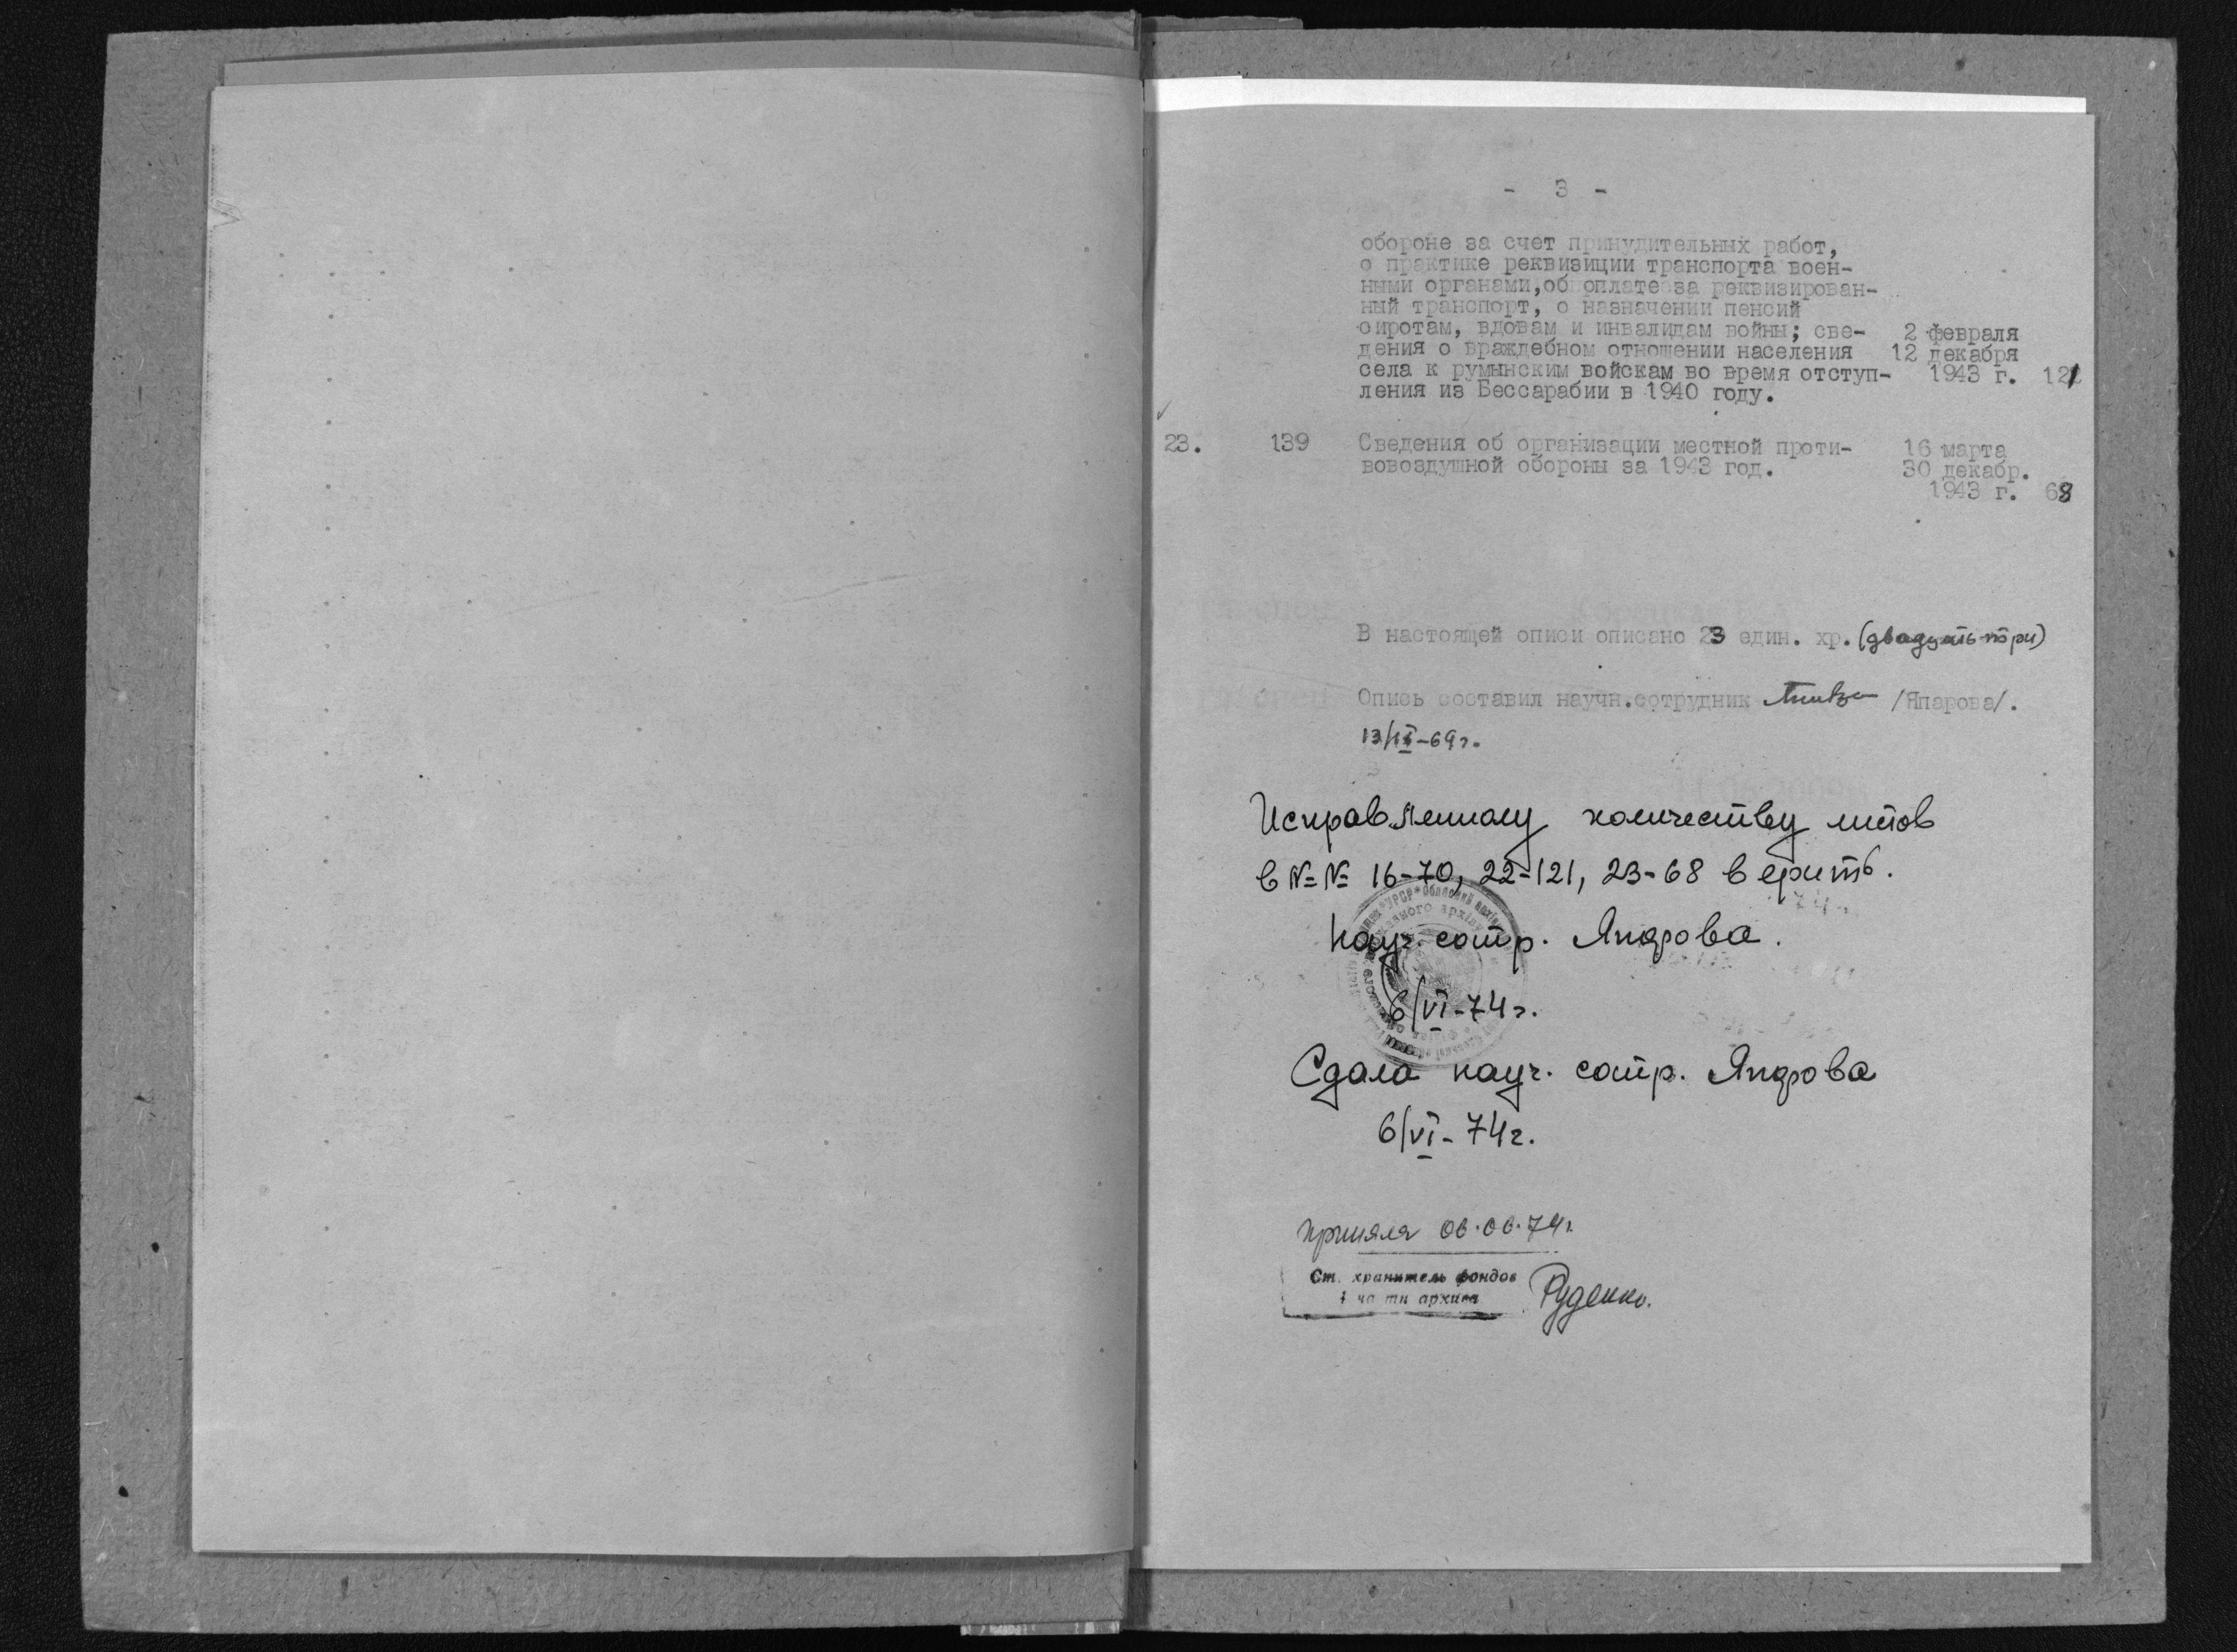 - 3 -
обороне за счет принудительных работ,
о практике реквизиции транспорта воен-
ными органами, об оплате за реквизирован-
ный транспорт, о назначении пенсий
сиротам, вдовам и инвалидам войны; све- 2 февраля
дения о враждебном отношении населения 12 декабря
села к румынским войскам во время отступ- 1943 г. 121
ления из Бессарабии в 1940 году.
23. 139 Сведения об организации местной проти- 16 марта
вовоздушной обороны за 1943 год. 30 декабр.
1943 г. 68
В настоящей описи описано 23 един. хр. (двадцать три)
Опись составил научн.сотрудник /Япарова/.
-69г.
Исправленному количеству листов
в №№ 16-70, 22-121, 23-68 верить.
Науч. сотр. Япарова.
6/VI-74г.
Сдала науч. сотр. Япарова
6/VI-74г.
Приняла 06.06.74г.
Ст. хранитель фондов
архива Руденко.